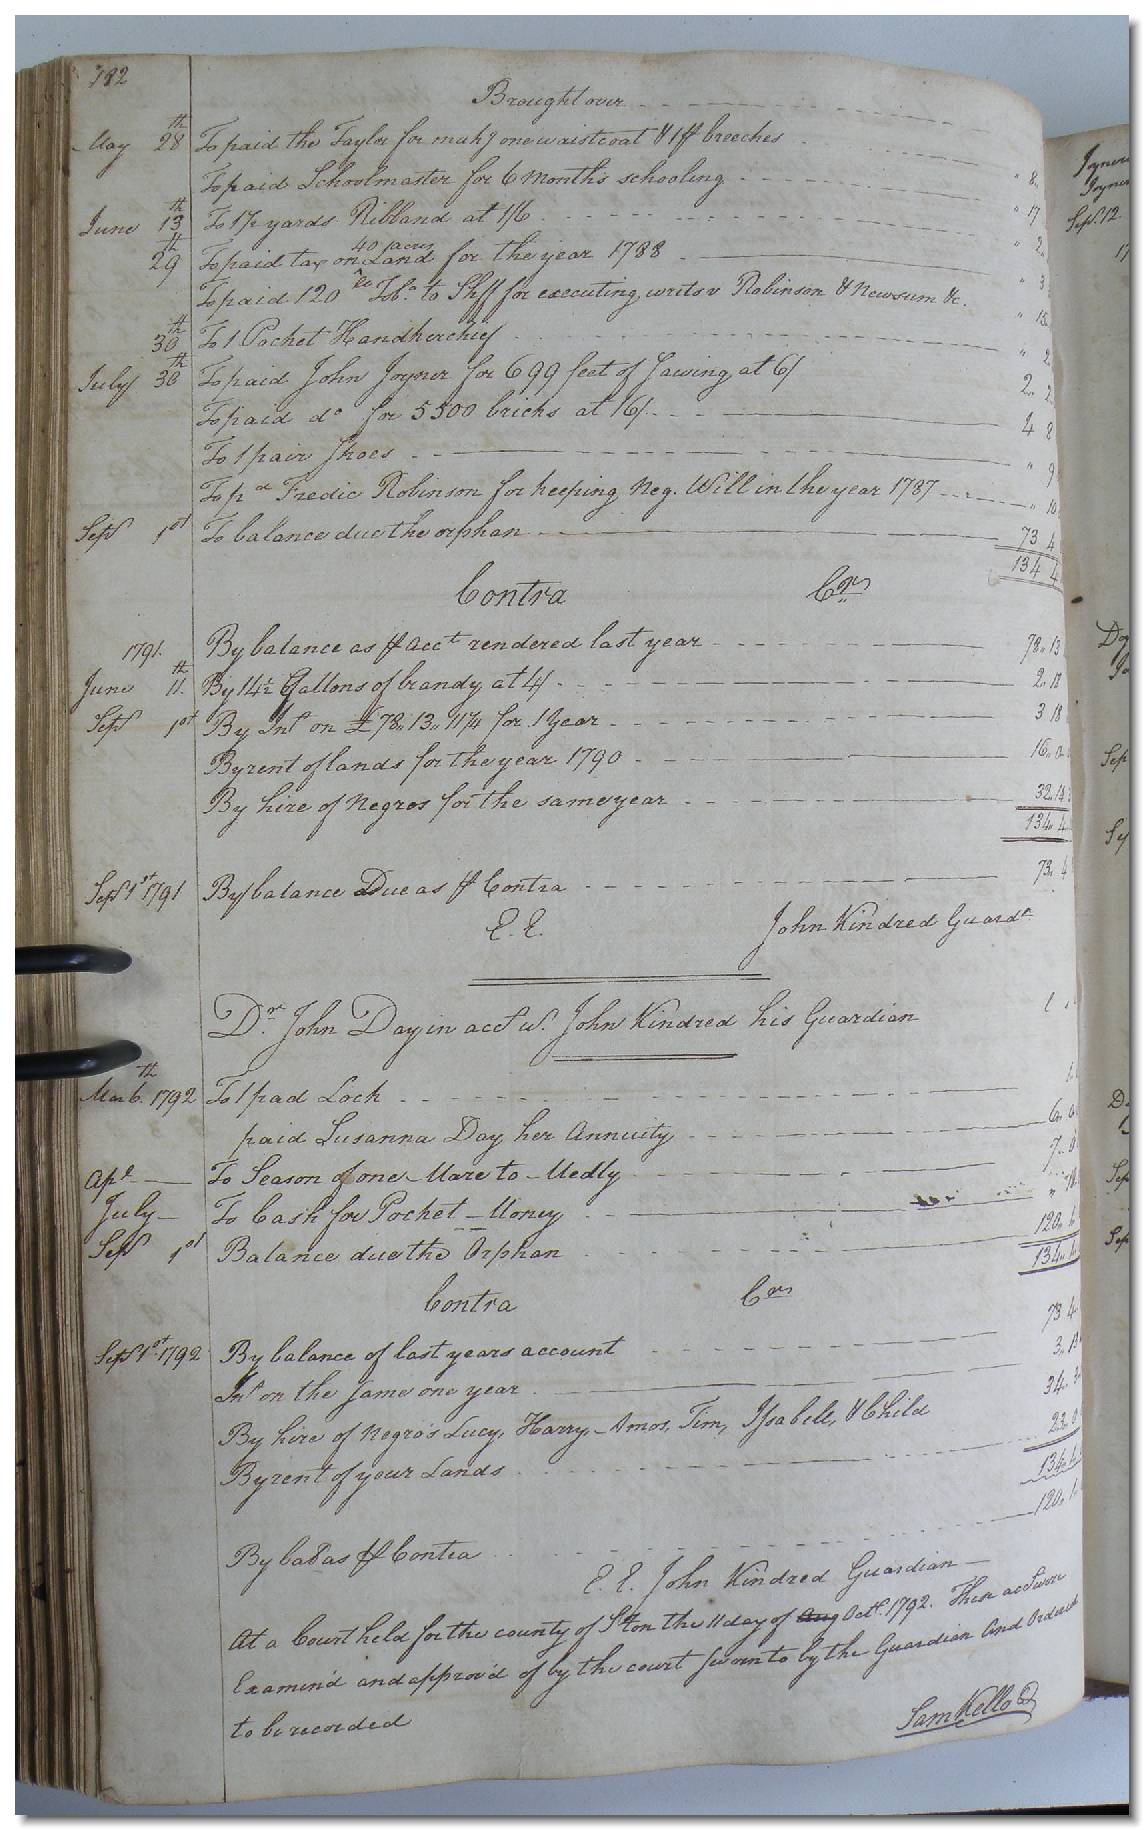 182
Brought over
May 28th To paid the Taylor for makg one waistcoat & 1 pr breeches " 8
To paid Schoolmaster for 6 Months schooling " 17
June 13th To 1½ yards Ribband at 1/6 " 2
29th To paid tax on 40 acres Land for the year 1788 " 3
To paid 120 lb Tobo. to Shff for executing writs v Robinson & Newsum &c. " 15
30th To 1 Pocket Handkerchief " 2
July 30th To paid John Joyner for 699 feet of Sawing at 6/ 2 2
To paid do for 5500 bricks at 16/ 4 8
To 1 pair Shoes " 9
To pd Fredic Robinson for keeping Neg. Will in the year 1787 " 10
Sept 1st To balance due the orphan 73 4
134 4
Contra Crs
1791. By balance as pr acct rendered last year 78 13
June 11th By 14½ Gallons of brandy at 4/ 2 18
Sept 1st By Int on £78.. 13.. 11¼ for 1 Year 3 18
By rent of lands for the year 1790 16 0
By hire of Negros for the same year 32 14
134 4
Sept 1st 1791 By balance Due as pr Contra 73 4
E. E. John Kindred Guardn
Dr. John Day in acct w. John Kindred his Guardian
Mar 6th. 1792 To 1 pad Lock
paid Susanna Day her Annuity 6 0
Apl To Season of one Mare to Medly
July To Cash for Pocket Money
Sept 1st Balance due the Orphan 120
134
Contra Crs
73 4
Sept 1st 1792 By balance of last years account
Int on the same one year 3
By hire of Negro's Lucy, Harry, Amos, Tim, Isabell, & Child 34
By rent of your Lands 22
134
By bal as pr Contra 120
E. E. John Kindred Guardian
At a Court held for the county of Sºton the 11 day of Aug Octr. 1792. These acct were
Examin'd and approv'd of by the court sworn to by the Guardian And Ordered
to be recorded
Sam Kello
Sept. 12